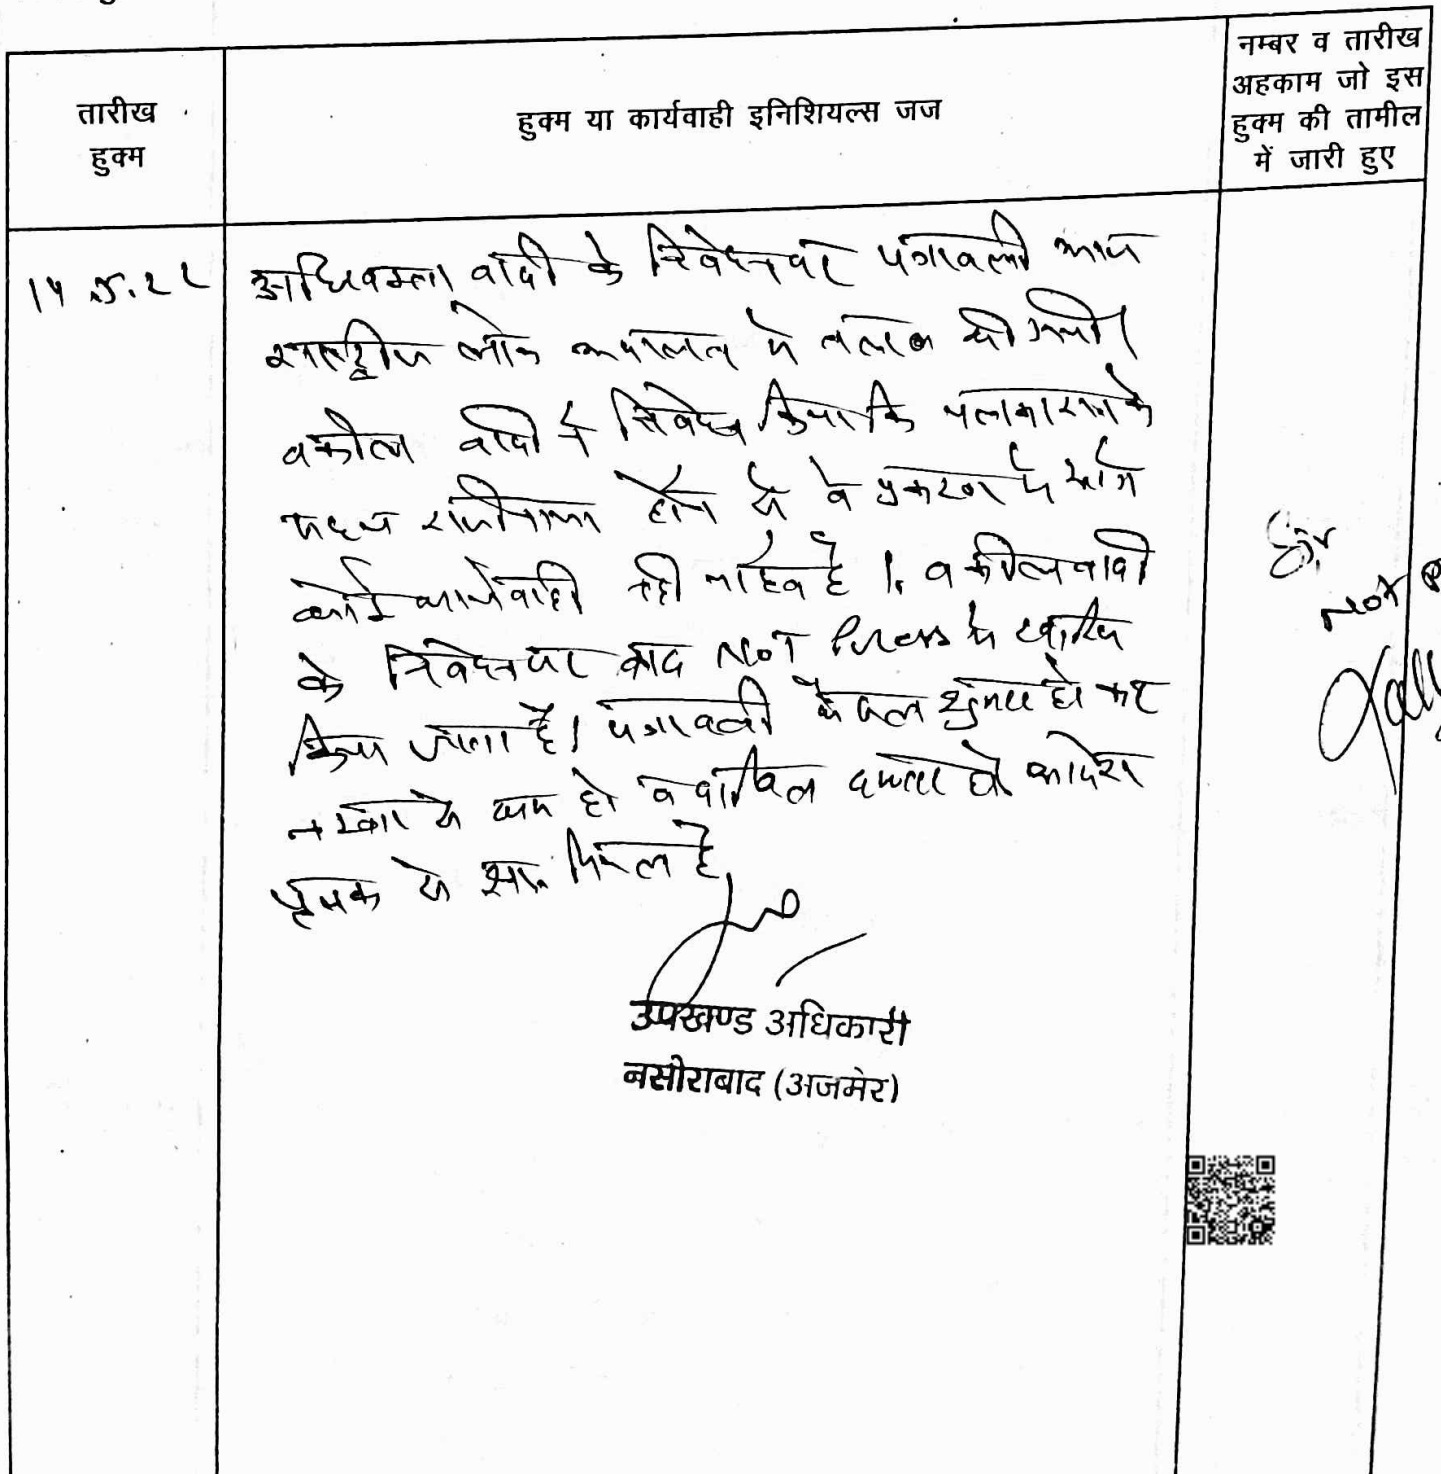 तारीख
हुक्म
हुक्म या कार्यवाही इनिशियल्स जज
नम्बर व तारीख
अहकाम जो इस
हुक्म की तामील
में जारी हुए
14.5.22
अधिवक्ता वादी के निवेदन पर पत्रावली आज
राष्ट्रीय लोक अदालत में तलब की गयी।
वकील वादी ने निवेदन किया कि पक्षकारान के
मध्य राजीनामा होने से वे प्रकरण में आगे
कोई कार्यवाही नहीं चाहते है। वकील वादी
के निवेदन पर वाद NOT Press में खारिज
किया जाता है। पत्रावली फैसल शुमार हो कर
नम्बर से कम हो व दाखिल दफ्तर हो आदेश
पृथक से
है
उपखण्ड अधिकारी
नसीराबाद (अजमेर)
Not